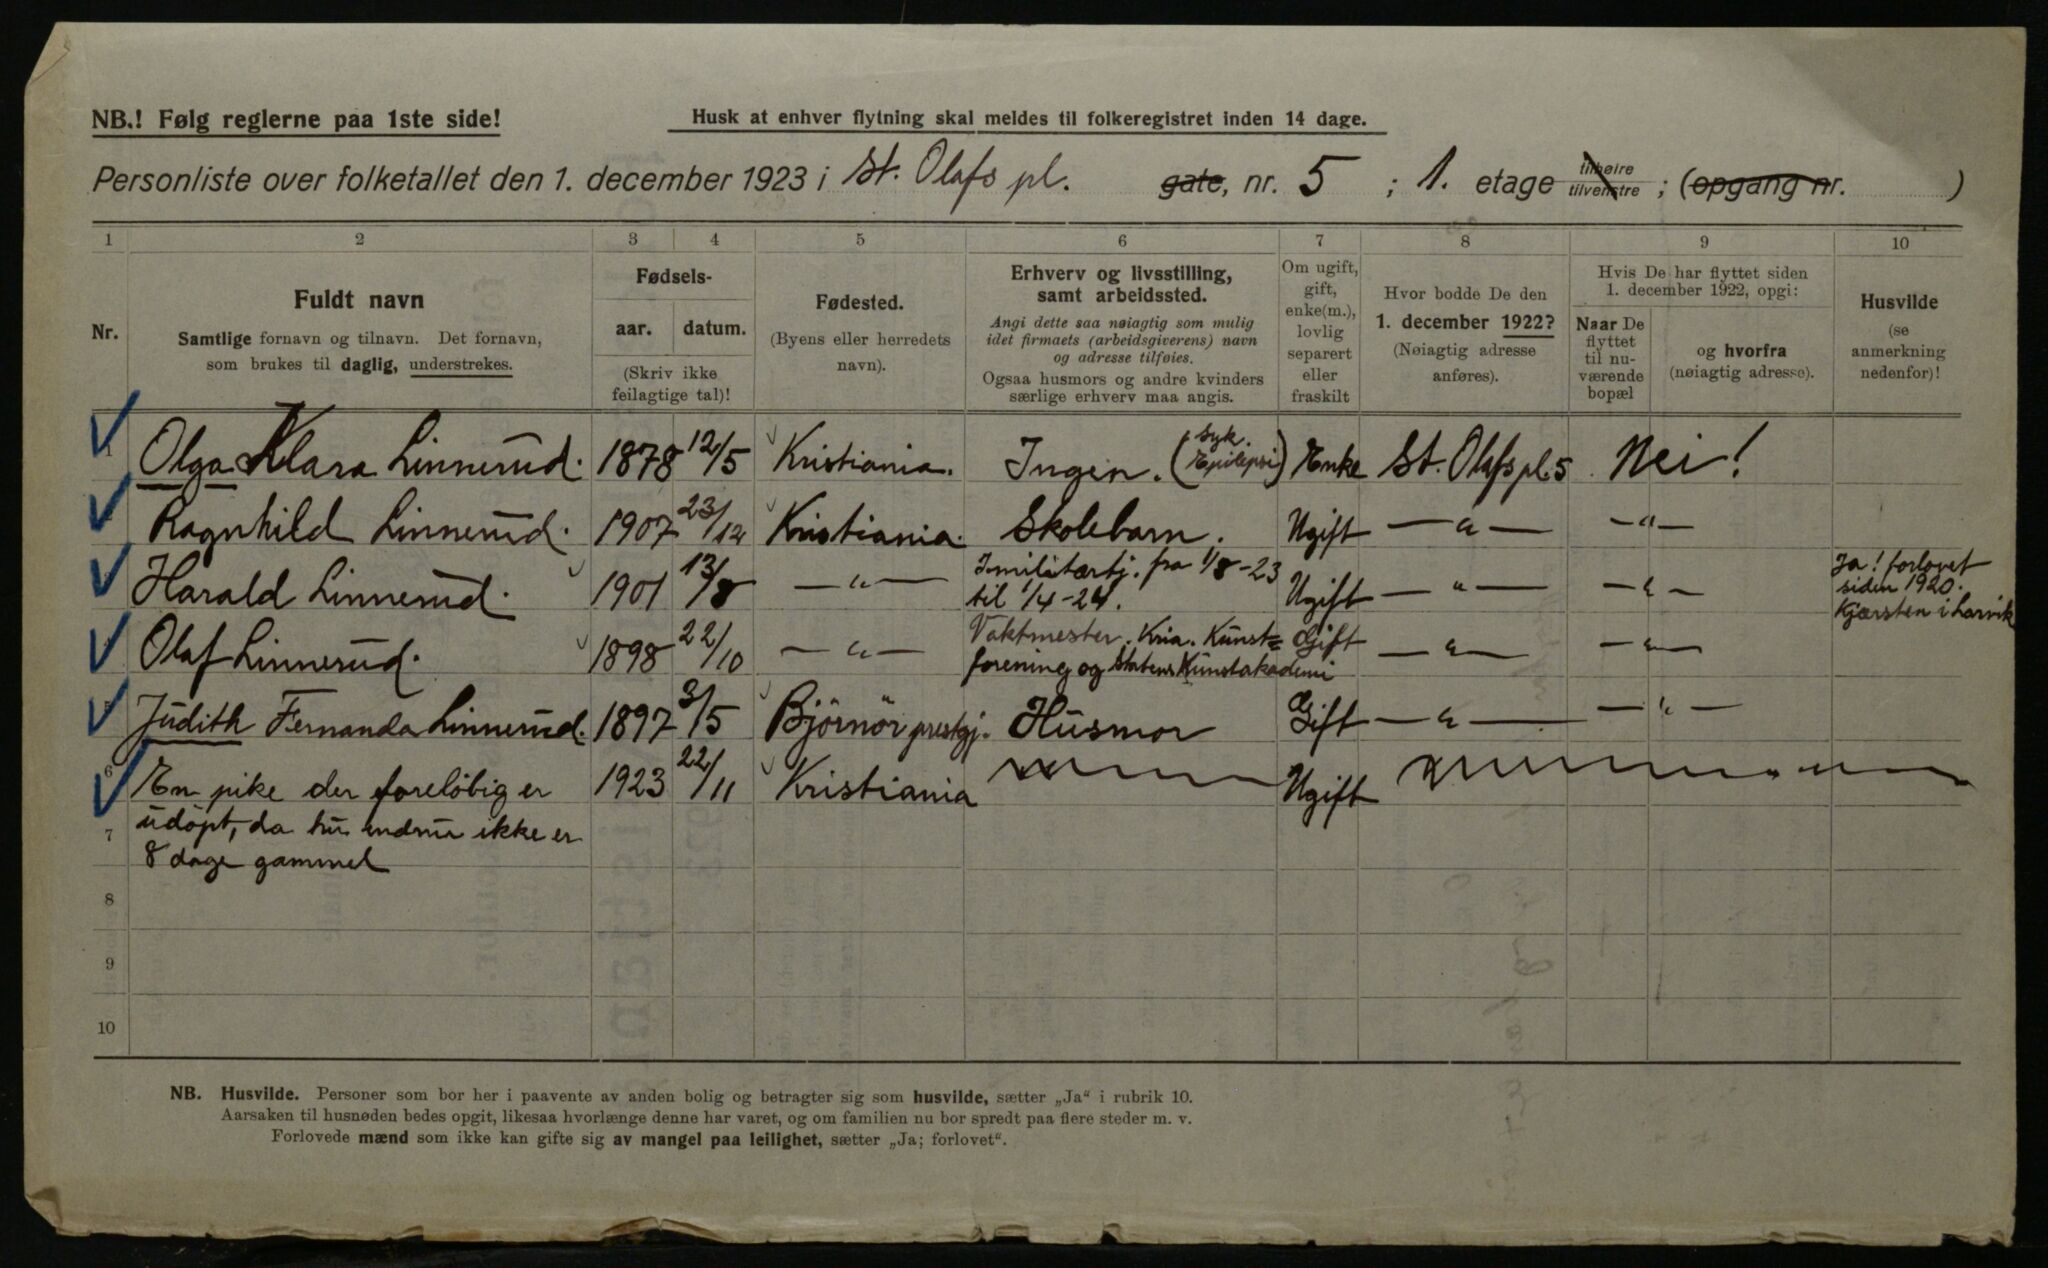 NB.! Følg reglerne paa 1ste side!
Husk at enhver flytning skal meldes til folkeregistret inden 14 dage.
Personliste over folketallet den 1. december 1923 i St. Olafs pl. gate, nr. 5 ; 1. etage tilhøire tilvenstre ; (opgang nr. )
1 2 3 4 5 6 7 8 9 10
Nr.
Fuldt navn
Samtlige fornavn og tilnavn. Det fornavn,
som brukes til daglig, understrekes.
Fødsels-
aar. datum.
(Skriv ikke
feilagtige tal)!
Fødested.
(Byens eller herredets
navn).
Erhverv og livsstilling,
samt arbeidssted.
Angi dette saa nøiagtig som mulig
idet firmaets (arbeidsgiverens) navn
og adresse tilføies.
Ogsaa husmors og andre kvinders
særlige erhverv maa angis.
Om ugift,
gift,
enke(m.),
lovlig
separert
eller
fraskilt
Hvor bodde De den
1. december 1922?
(Nøiagtig adresse
anføres).
Hvis De har flyttet siden
1. december 1922, opgi:
Naar De
flyttet
til nu-
værende
bopæl
og hvorfra
(nøiagtig adresse).
Husvilde
(se
anmerkning
nedenfor)!
1 Olga Klara Linnerud. 1878 12/5 Kristiania. Ingen. (Syk. Epilepsi) Enke St. Olafs pl. 5 Nei!
2 Ragnhild Linnerud. 1907 23/12 Kristiania. Skolebarn. Ugift — " — — " —
3 Harald Linnerud. 1901 13/8 — " — I militærtj. fra 1/8-23 til 1/4-24. Ugift — " — — " — Ja! forlovet siden 1920. Kjærsten i Larvik
4 Olaf Linnerud. 1898 22/10 — " — Vaktmester. Kria. Kunst= forening og Statens Kunstakademi Gift — " — — " —
5 Judith Fernanda Linnerud. 1897 3/5 Björnör prestgj. Husmor Gift — " — — " —
6 En pike der foreløbig er 1923 22/11 Kristiania Ugift
7 udøpt, da hu endnu ikke er
8 dage gammel
8
9
10
NB. Husvilde. Personer som bor her i paavente av anden bolig og betragter sig som husvilde, sætter „Ja“ i rubrik 10.
Aarsaken til husnøden bedes opgit, likesaa hvorlænge denne har varet, og om familien nu bor spredt paa flere steder m. v.
Forlovede mænd som ikke kan gifte sig av mangel paa leilighet, sætter „Ja; forlovet“.